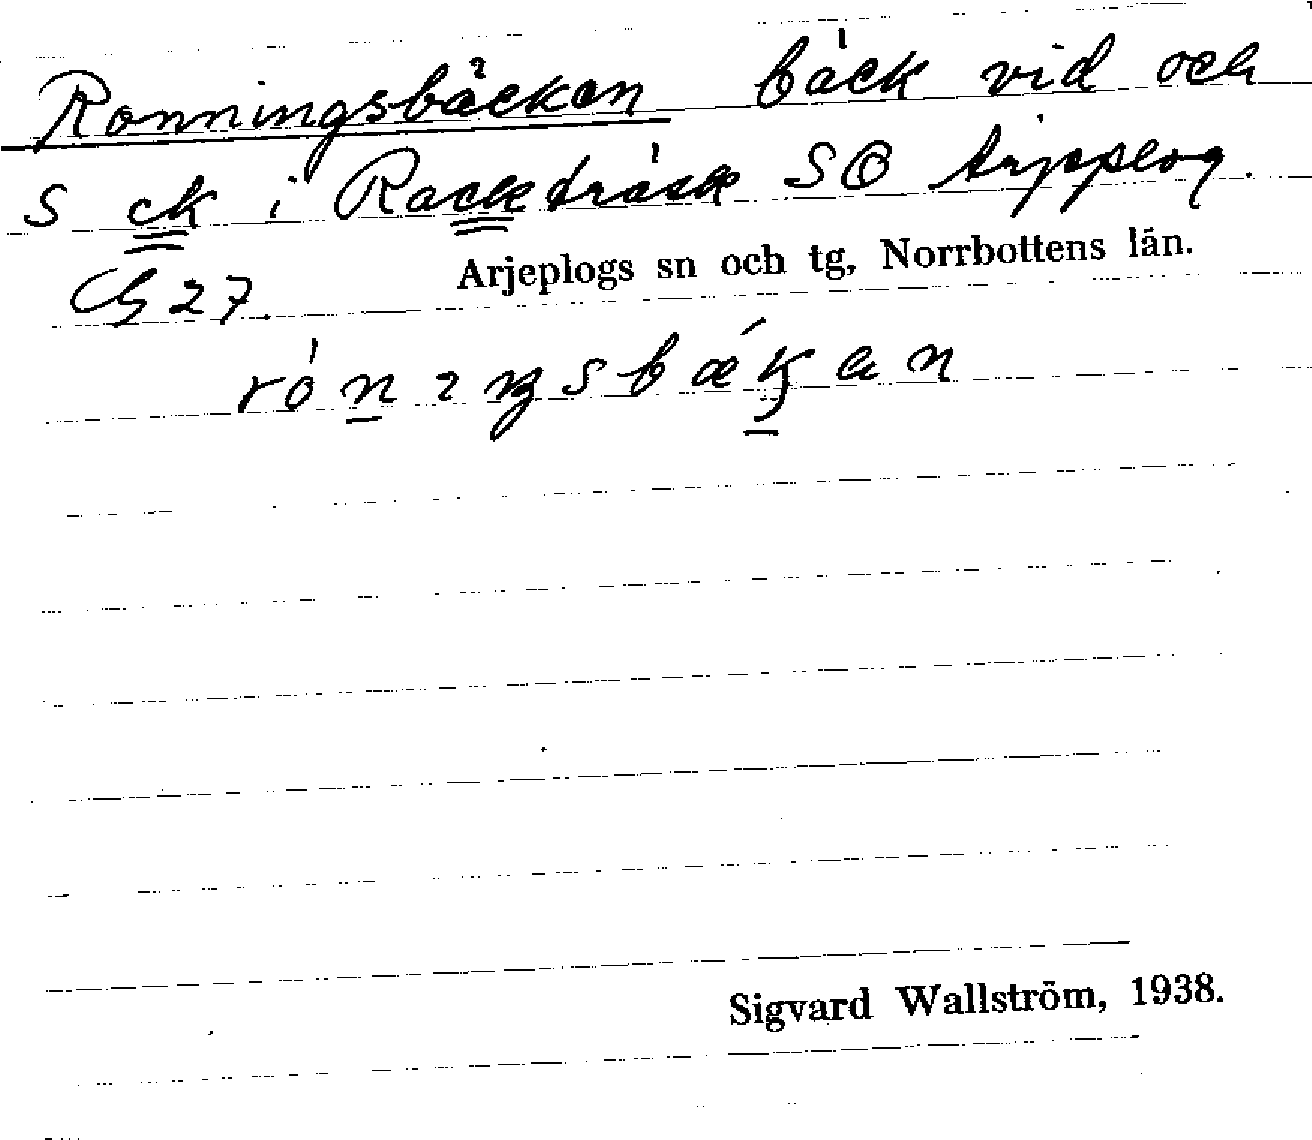 Ronningsbäcken bäck vid och
S ck i Rackträsk SO Arjeplog.
G 27.
Arjeplogs sn och tg, Norrbottens län.
Sigvard Wallström, 1938.